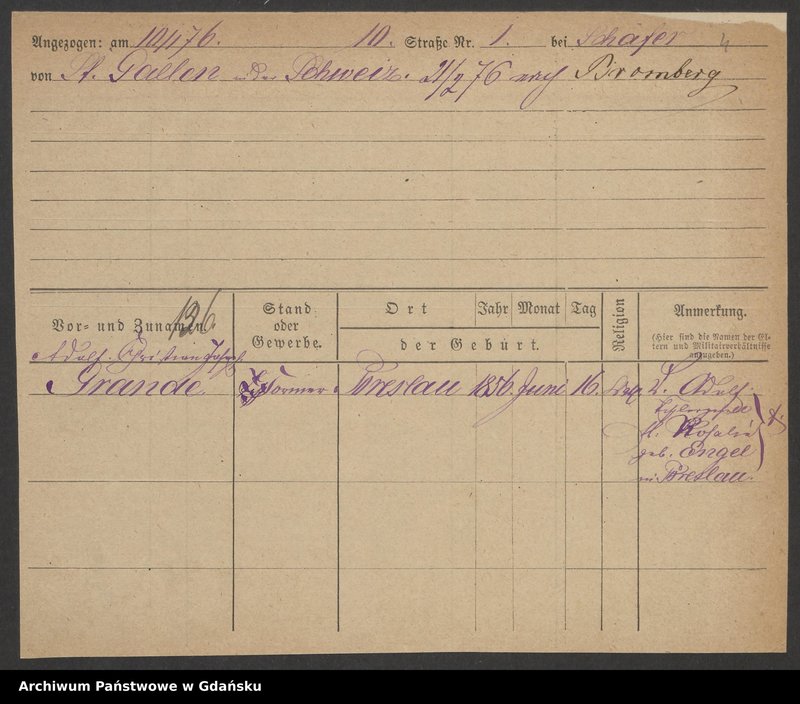 Angezogen: am 10/4 76. 10. Straße Nr. 1. bei Schäfer
von St. Gallen in der Schweiz. 21/2 76 nach Bromberg
136.
Vor- und Zunamen. Stand oder Gewerbe. Ort Jahr Monat Tag der Geburt. Religion Anmerkung.
(Hier sind die Namen der Eltern und Militairverhältnisse anzugeben.)
Adolf Christian Joseph
Grande Former Breslau 1856. Juni 16. V. Adolf
M. Rosalie
geb. Engel
in Breslau.
Archiwum Państwowe w Gdańsku